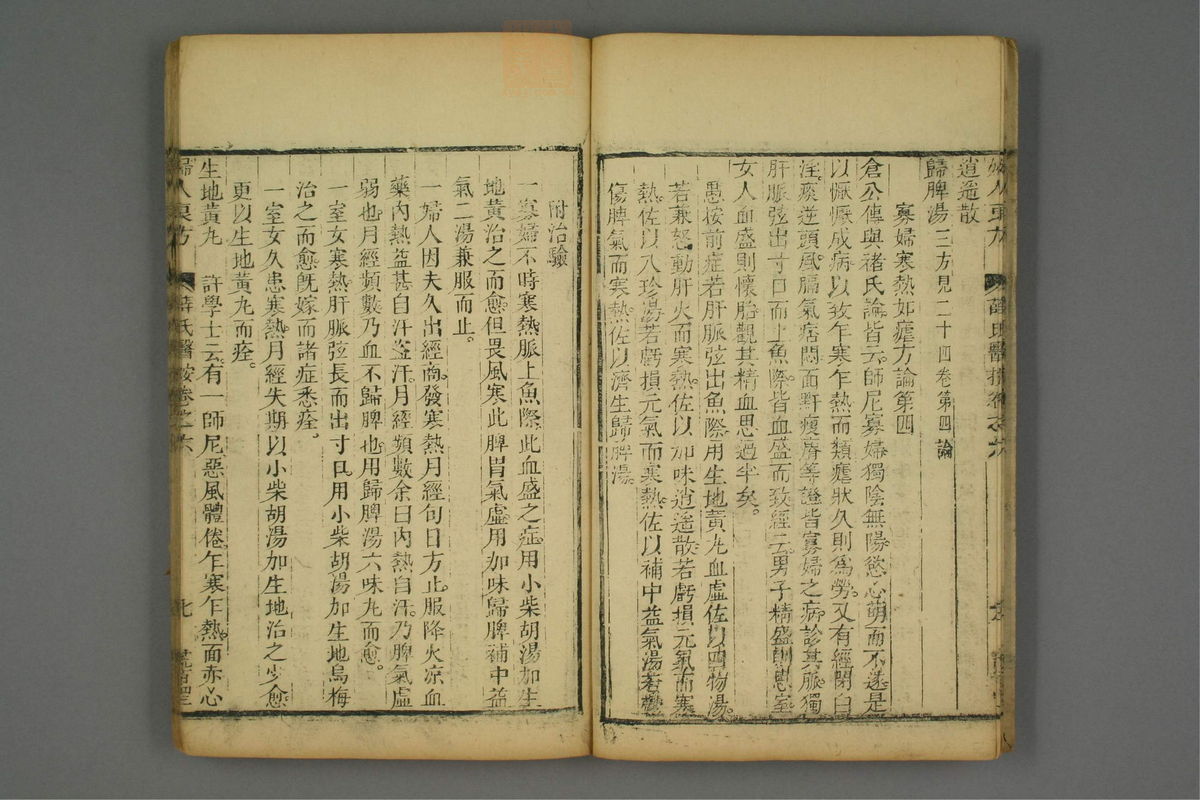 婦人良方 薛氏醫按卷之六
逍遙散
歸脾湯三方見二十四卷第四論
寡婦寒熱如瘧方論第四
倉公傳與褚氏論皆云師尼寡婦獨陰無陽慾心萌而不遂是
以懨懨成病以致乍寒乍熱而類瘧狀久則爲勞又有經閉白
淫痰逆頭風膈氣痞悶面䵟瘦瘠等證皆寡婦之病診其脈獨
肝脈弦出寸口而上魚際皆血盛而致經云男子精盛則思室
女人血盛則懷胎觀其精血思過半矣。
愚按前症若肝脈弦出魚際用生地黃丸血虛佐以四物湯。
若兼怒動肝火而寒熱佐以加味逍遙散若虧損元氣而寒
熱佐以八珍湯若虧損元氣而寒熱佐以補中益氣湯若鬱
傷脾氣而寒熱佐以濟生歸脾湯。
附治驗
一寡婦不時寒熱脈上魚際此血盛之症用小柴胡湯加生
地黃治之而愈但畏風寒此脾胃氣虛用加味歸脾補中益
氣二湯兼服而止。
一婦人因夫久出經商發寒熱月經旬日方止服降火凉血
藥內熱益甚自汗盜汗月經頻數余曰內熱自汗乃脾氣虛
弱也月經頻數乃血不歸脾也用歸脾湯六味丸而愈。
一室女寒熱肝脈弦長而出寸口用小柴胡湯加生地烏梅
治之而愈旣嫁而諸症悉痊。
一室女久患寒熱月經失期以小柴胡湯加生地治之少愈
更以生地黃丸而痊。
生地黃丸 許學士云有一師尼惡風體倦乍寒乍熱面赤心
婦人良方 薛氏醫按卷之六 七